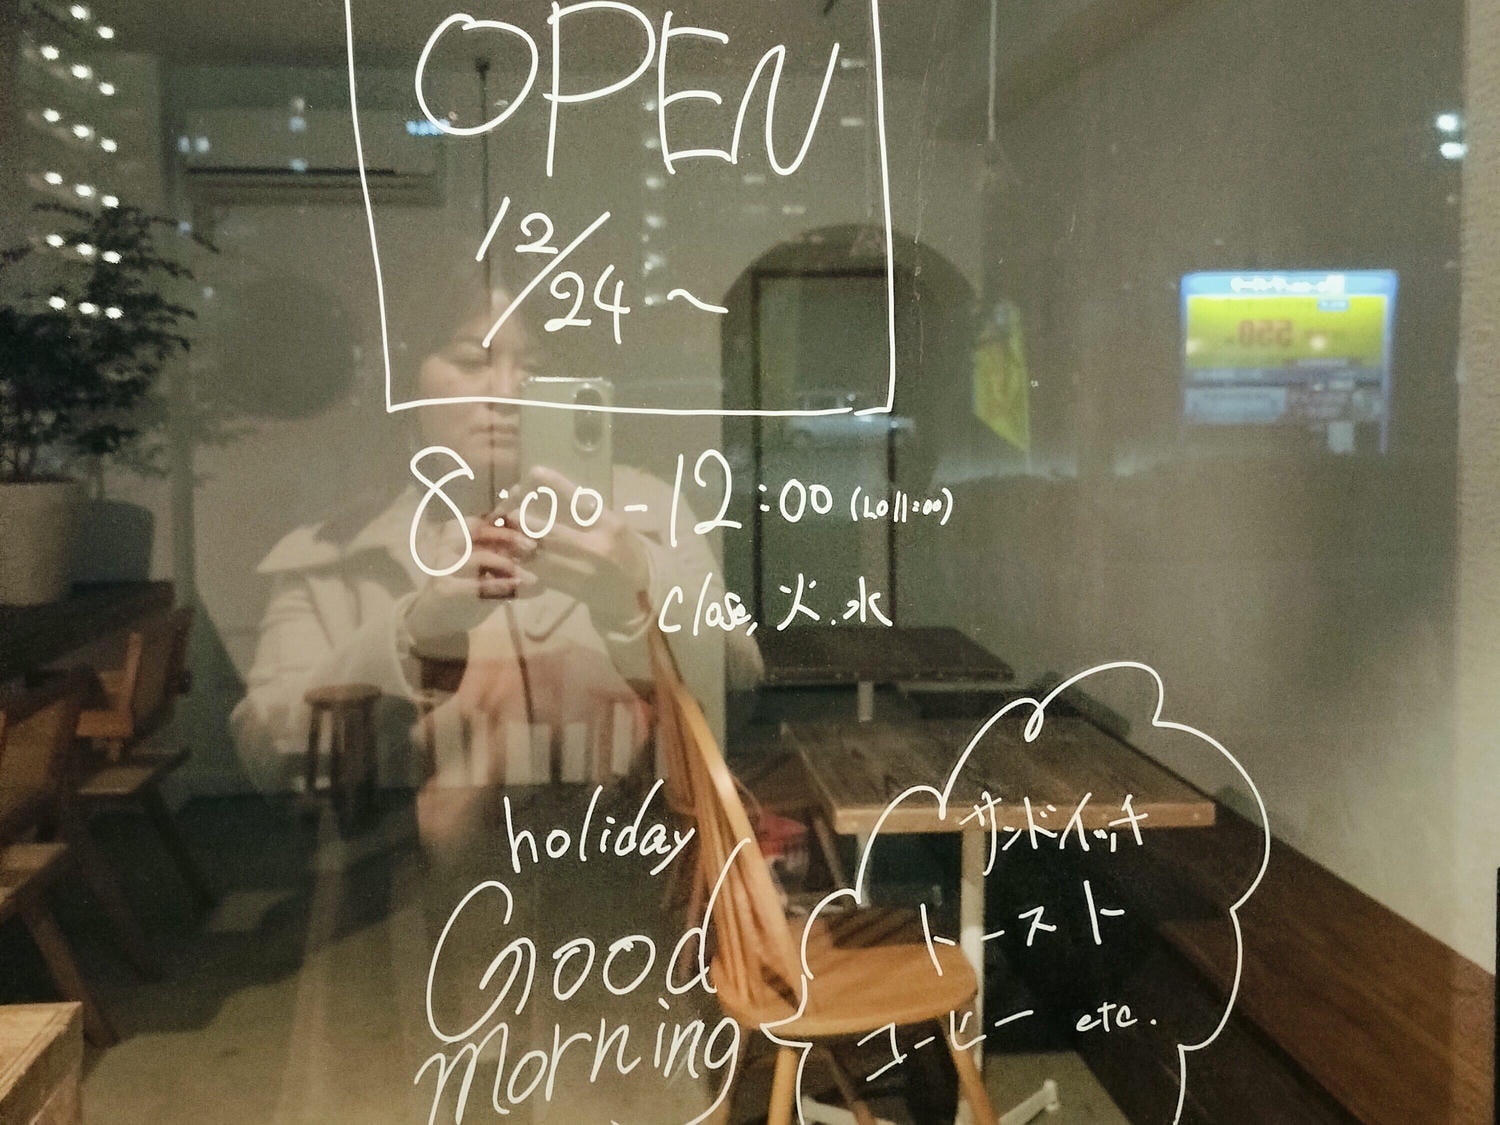 OPEN
12/24~
8:00-12:00 (LO 11:00)
Close, 火.水
holiday
Good
morning
サンドイッチ
トースト
コーヒー etc.